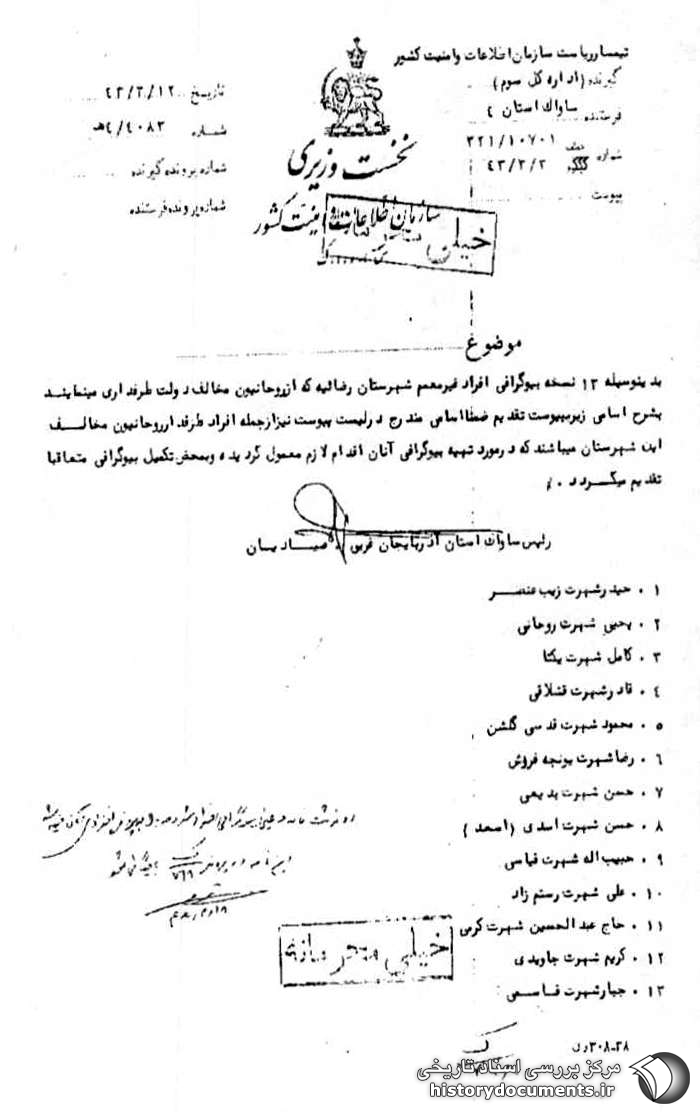 تیمسار ریاست سازمان اطلاعات و امنیت کشور
گیرنده (اداره کل سوم)
فرستنده ساواک استان ٤
شماره ۳۲۱/۱۰۷۰۱
۴۳/۳/۲
پیوست
نخست وزیری
سازمان اطلاعات و امنیت کشور
خیلی
تاریخ ۴۳/۳/۱۲
شماره ۴/۴۰۸۳ﻫ
شماره پرونده گیرنده
شماره پرونده فرستنده
موضوع
بدینوسیله ۱۳ نسخه بیوگرافی افراد غیرمعمم شهرستان رضائیه که از روحانیون مخالف دولت طرفداری مینمایند
بشرح اسامی زیر بپیوست تقدیم ضمنا اسامی مندرج در لیست پیوست نیز از جمله افراد طرفدار روحانیون مخالف
این شهرستان میباشند که در مورد تهیه بیوگرافی آنان اقدام لازم معمول گردیده و بمحض تکمیل بیوگرافی متعاقبا
تقدیم میگردد ۰/
رئیس ساواک استان آذربایجان غربی
۱ ۰ حیدر شهرت زیب عنصر
۲ ۰ یحیی شهرت روحانی
۳ ۰ کامل شهرت یکتا
۴ ۰ قادر شهرت قشلاقی
۵ ۰ محمود شهرت قدسی گلشن
۶ ۰ رضا شهرت یونجه فروش
۷ ۰ حسن شهرت بدیعی
۸ ۰ حسن شهرت اسدی (اسعد)
۹ ۰ حبیب اله شهرت قیاسی
۱۰ ۰ علی شهرت رستم زاد
۱۱ ۰ حاج عبدالحسین شهرت کرمی
۱۲ ۰ کریم شهرت جاویدی
۱۳ ۰ جبار شهرت قاسمی
خیلی محرمانه
۳۰۸-۲۸
مرکز بررسی اسناد تاریخی
historydocuments.ir